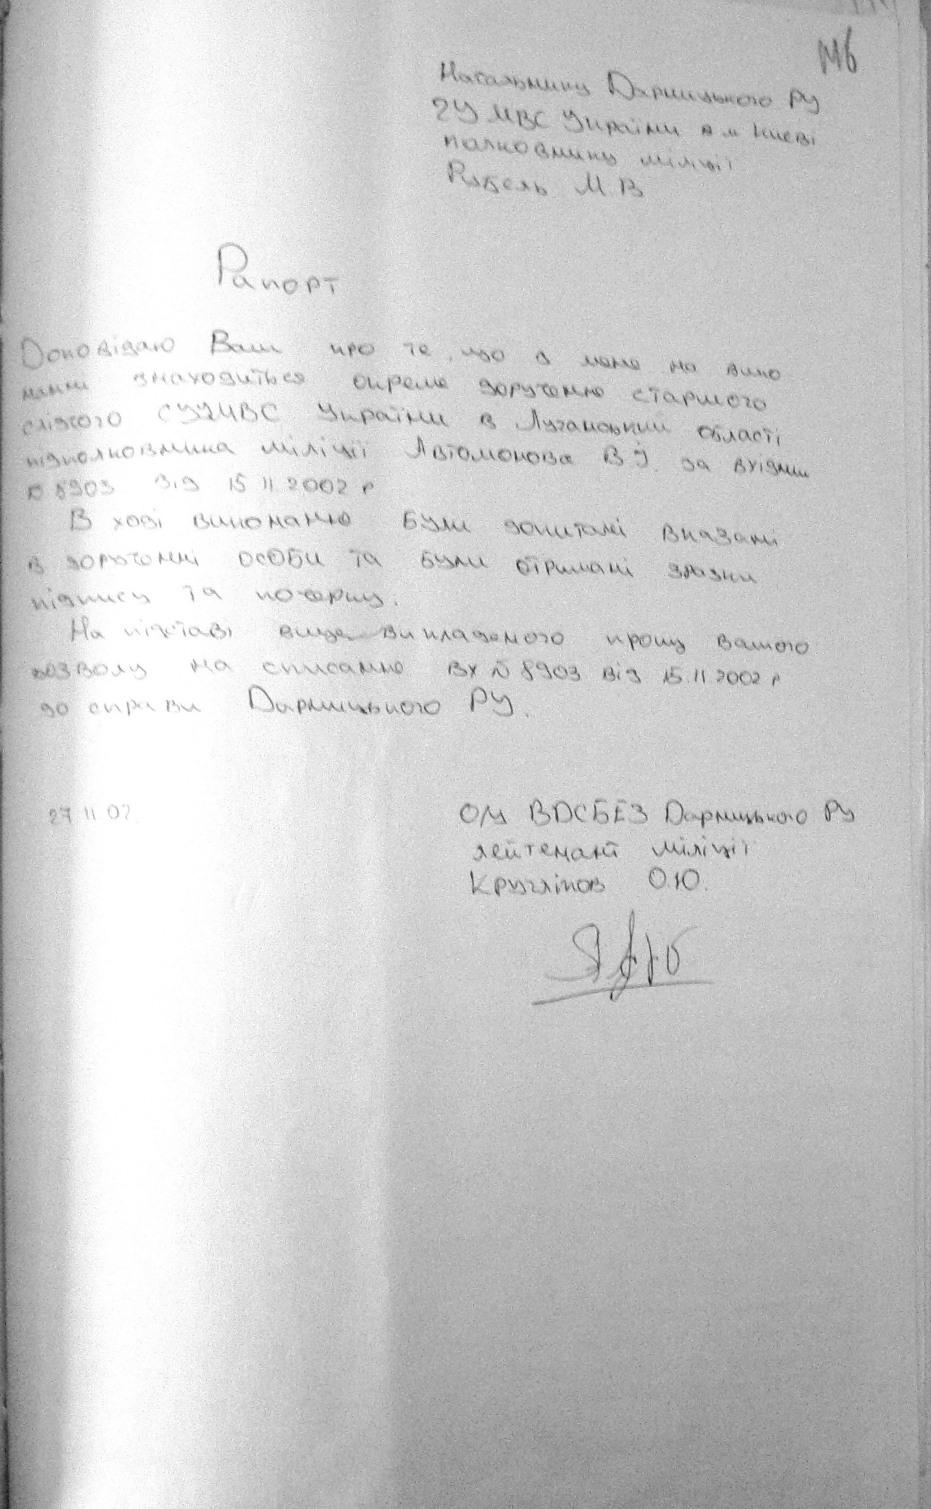 116
Начальнику Дарницького РУ
ГУ МВС України в м Києві
полковнику міліції
Рубель М. В
Рапорт
Доповідаю Вам про те, що в мене на вико
нанні знаходиться окреме доручення старшого
слідчого СУУМВС України в Луганській області
підполковника міліції Автомонова В. Й. за вхідним
№ 8903 від 15 11. 2002 р
В ході виконання були допитані вказані
в дорученні особи та були отримані зразки
підпису та почерку.
На підставі вище викладеного прошу вашого
дозволу на списання вх № 8903 від 15.11 2002 р
до справи Дарницького РУ.
27 11 02
ОУ ВДСБЕЗ Дарницького РУ
лейтенант міліції
О.Ю.